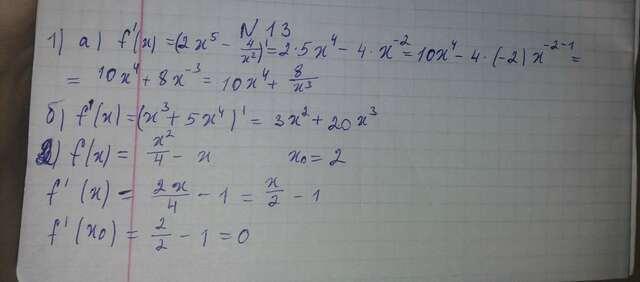 N 13
1) а) f'(x) = (2x⁵ - 4/x²)' = 2·5x⁴ - 4·x⁻² = 10x⁴ - 4·(-2)x⁻²⁻¹ =
= 10x⁴ + 8x⁻³ = 10x⁴ + 8/x³
б) f'(x) = (x³ + 5x⁴)' = 3x² + 20x³
2) f(x) = x²/4 - x x₀ = 2
f'(x) = 2x/4 - 1 = x/2 - 1
f'(x₀) = 2/2 - 1 = 0